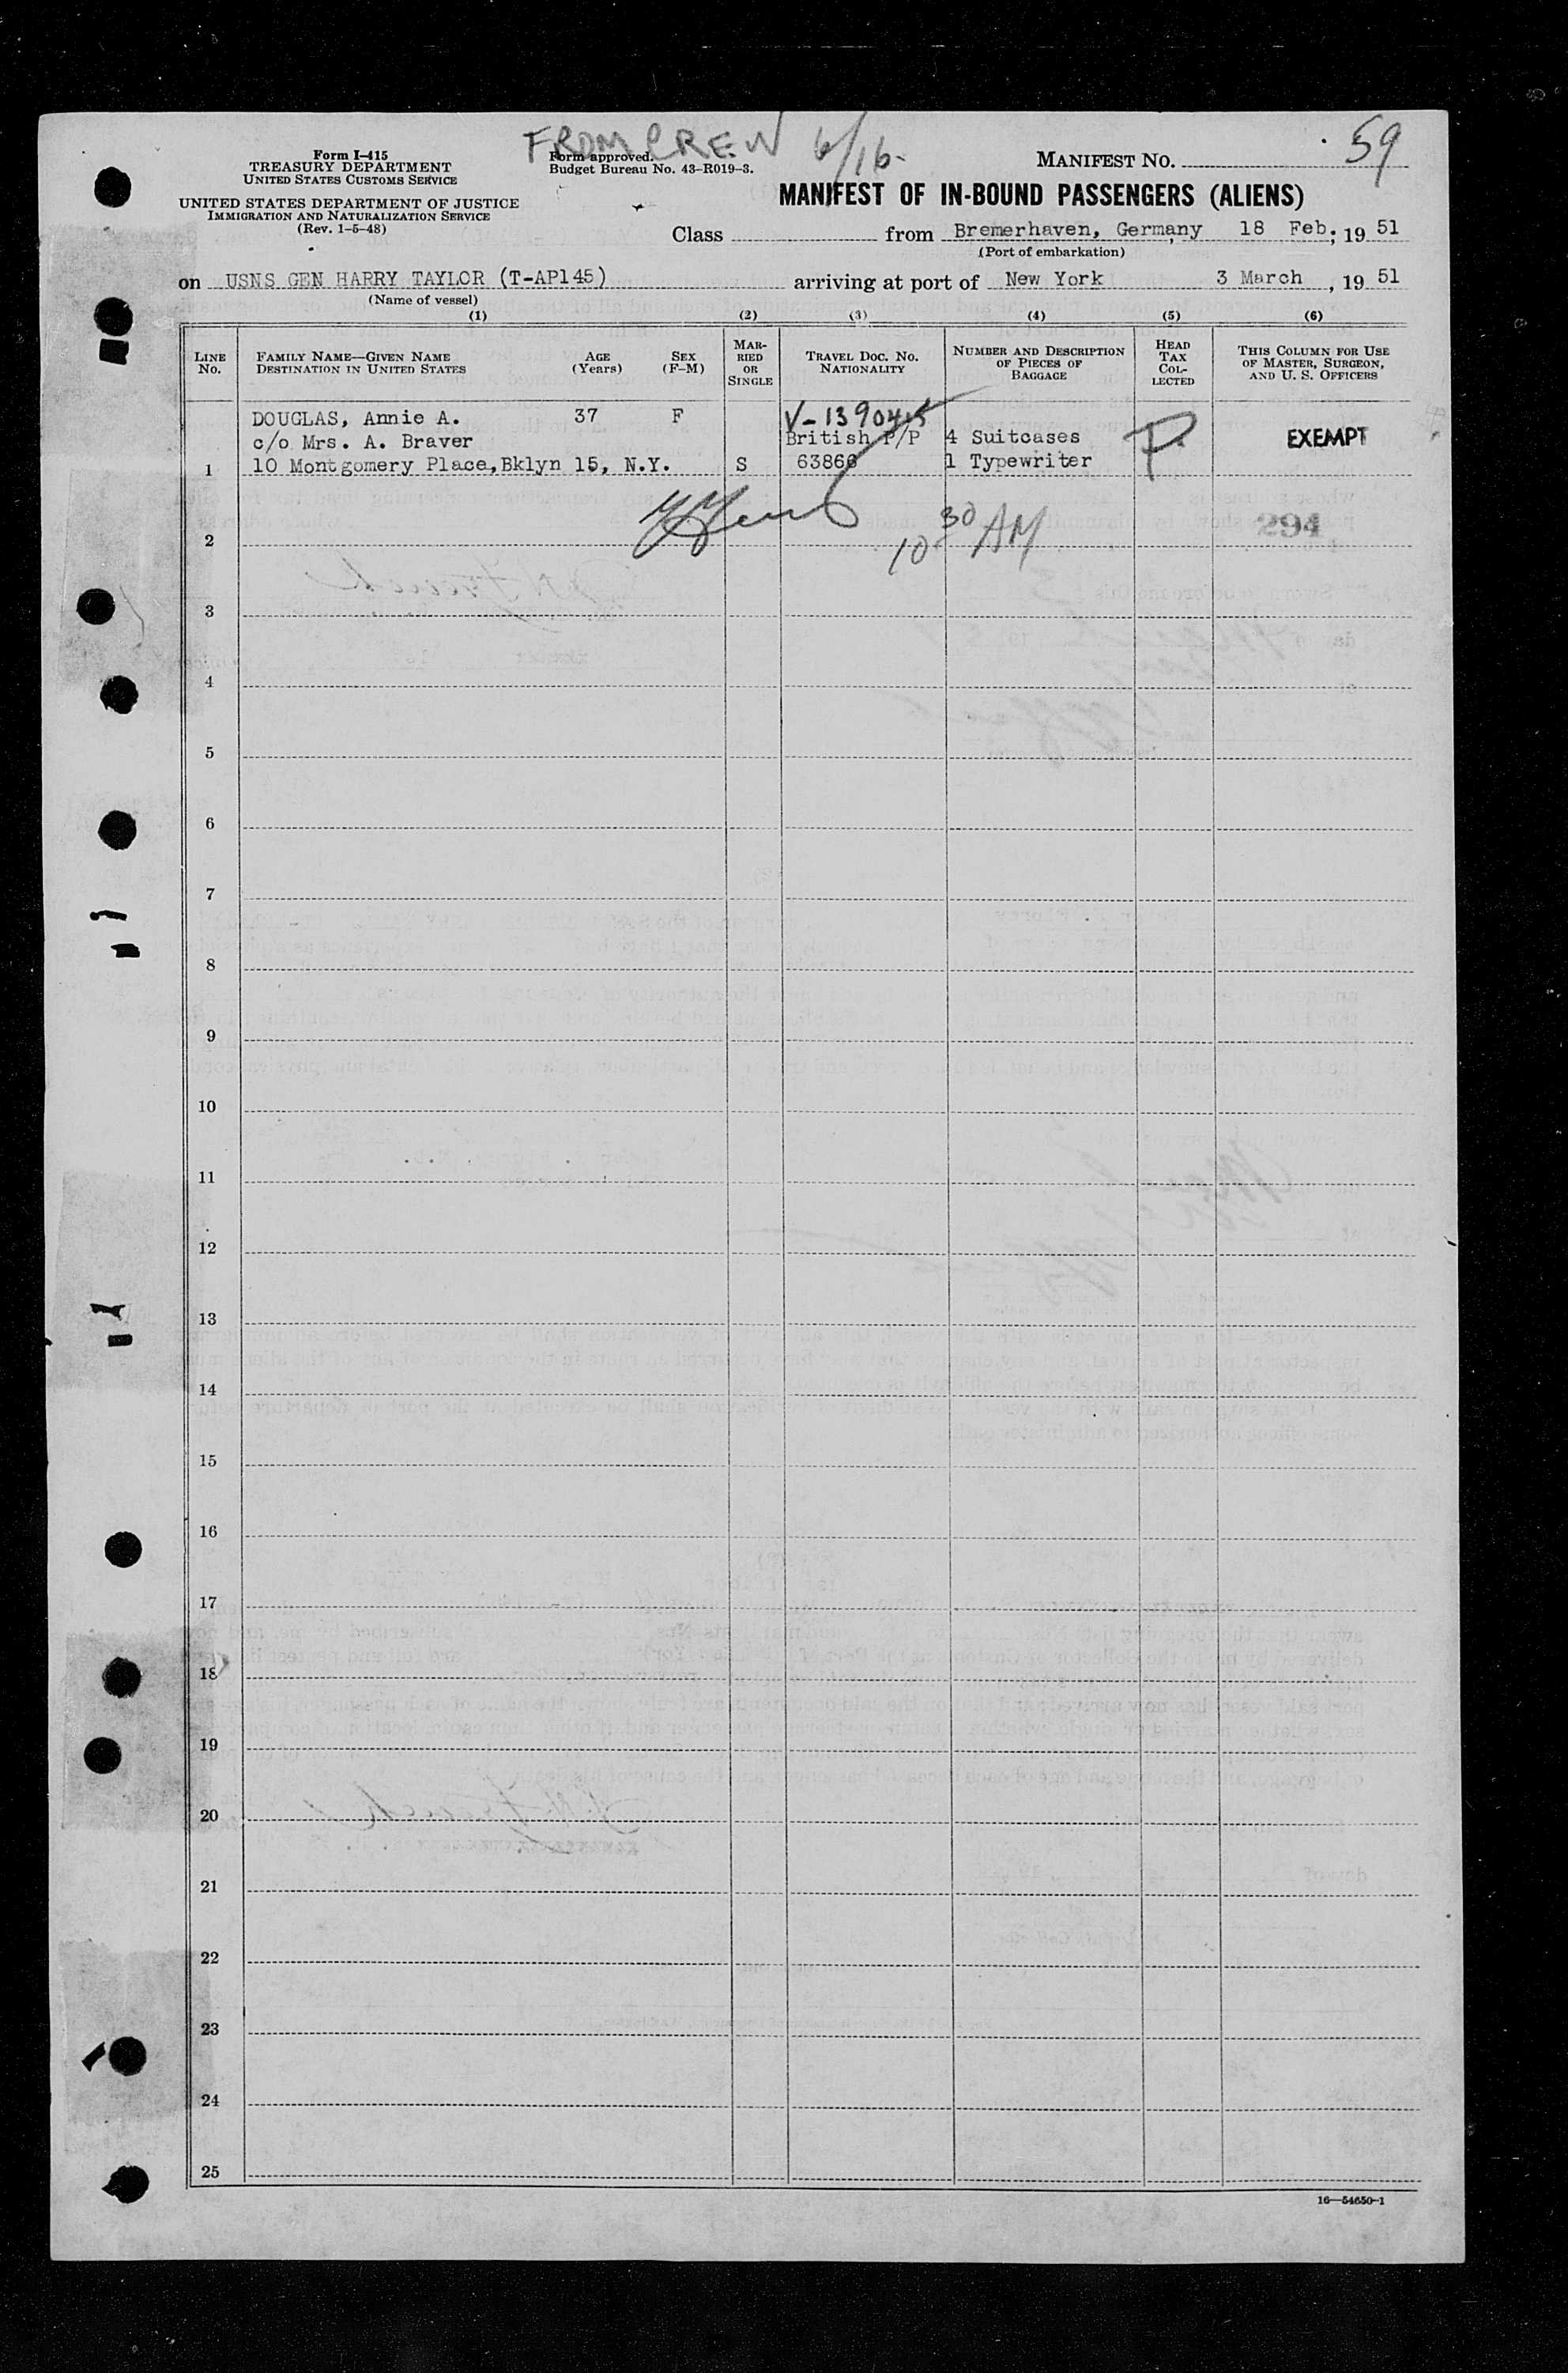 FROM CREW 6/16
59
Form I-415
TREASURY DEPARTMENT
UNITED STATES CUSTOMS SERVICE
UNITED STATES DEPARTMENT OF JUSTICE
IMMIGRATION AND NATURALIZATION SERVICE
(Rev. 1-5-48)
Form approved.
Budget Bureau No. 43-R019-3.
MANIFEST NO.
MANIFEST OF IN-BOUND PASSENGERS (ALIENS)
Class from Bremerhaven, Germany, 18 Feb. 19 51
(Port of embarkation)
on USNS GEN HARRY TAYLOR (T-AP145) arriving at port of New York 3 March, 19 51
(Name of vessel)
(1) (2) (3) (4) (5) (6)
LINE No.
FAMILY NAME—GIVEN NAME
DESTINATION IN UNITED STATES
AGE (Years)
SEX (F-M)
MARRIED OR SINGLE
TRAVEL DOC. NO.
NATIONALITY
NUMBER AND DESCRIPTION OF PIECES OF BAGGAGE
HEAD TAX COLLECTED
THIS COLUMN FOR USE OF MASTER, SURGEON, AND U. S. OFFICERS
DOUGLAS, Annie A. 37 F V-139045
c/o Mrs. A. Braver British P/P 4 Suitcases P. EXEMPT
1 10 Montgomery Place, Bklyn 15, N.Y. S 63866 1 Typewriter
10 30 AM 294
2
3
4
5
6
7
8
9
10
11
12
13
14
15
16
17
18
19
20
21
22
23
24
25
16—54650-1